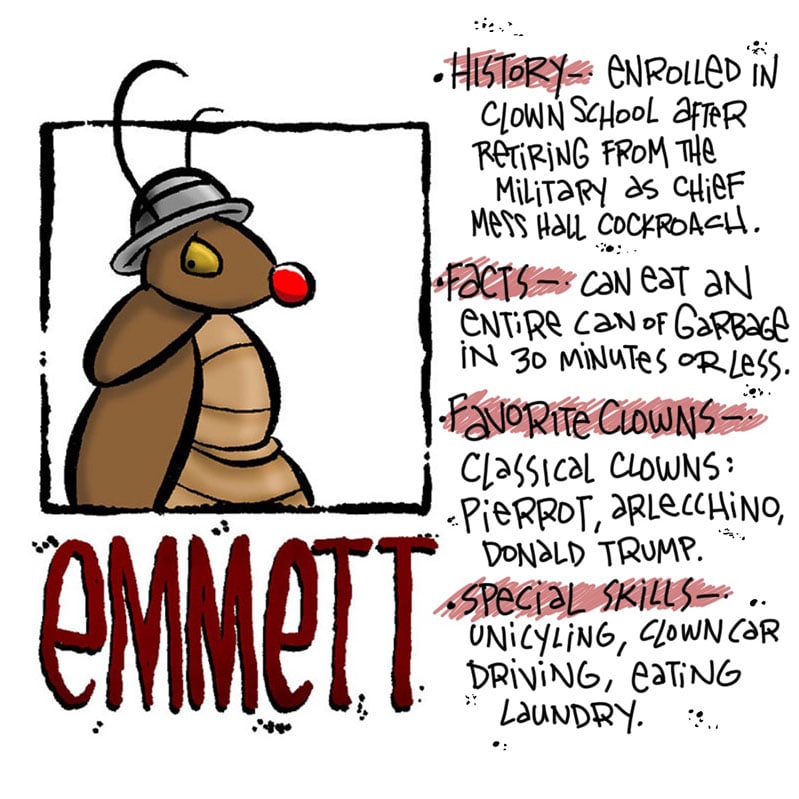 EMMETT
• HISTORY- ENROLLED IN
CLOWN SCHOOL AFTER
RETIRING FROM THE
MILITARY AS CHIEF
MESS HALL COCKROACH.
• FACTS- CAN EAT AN
ENTIRE CAN OF GARBAGE
IN 30 MINUTES OR LESS.
• FAVORITE CLOWNS-
CLASSICAL CLOWNS:
PIERROT, ARLECCHINO,
DONALD TRUMP.
• SPECIAL SKILLS-
UNICYLING, CLOWN CAR
DRIVING, EATING
LAUNDRY.